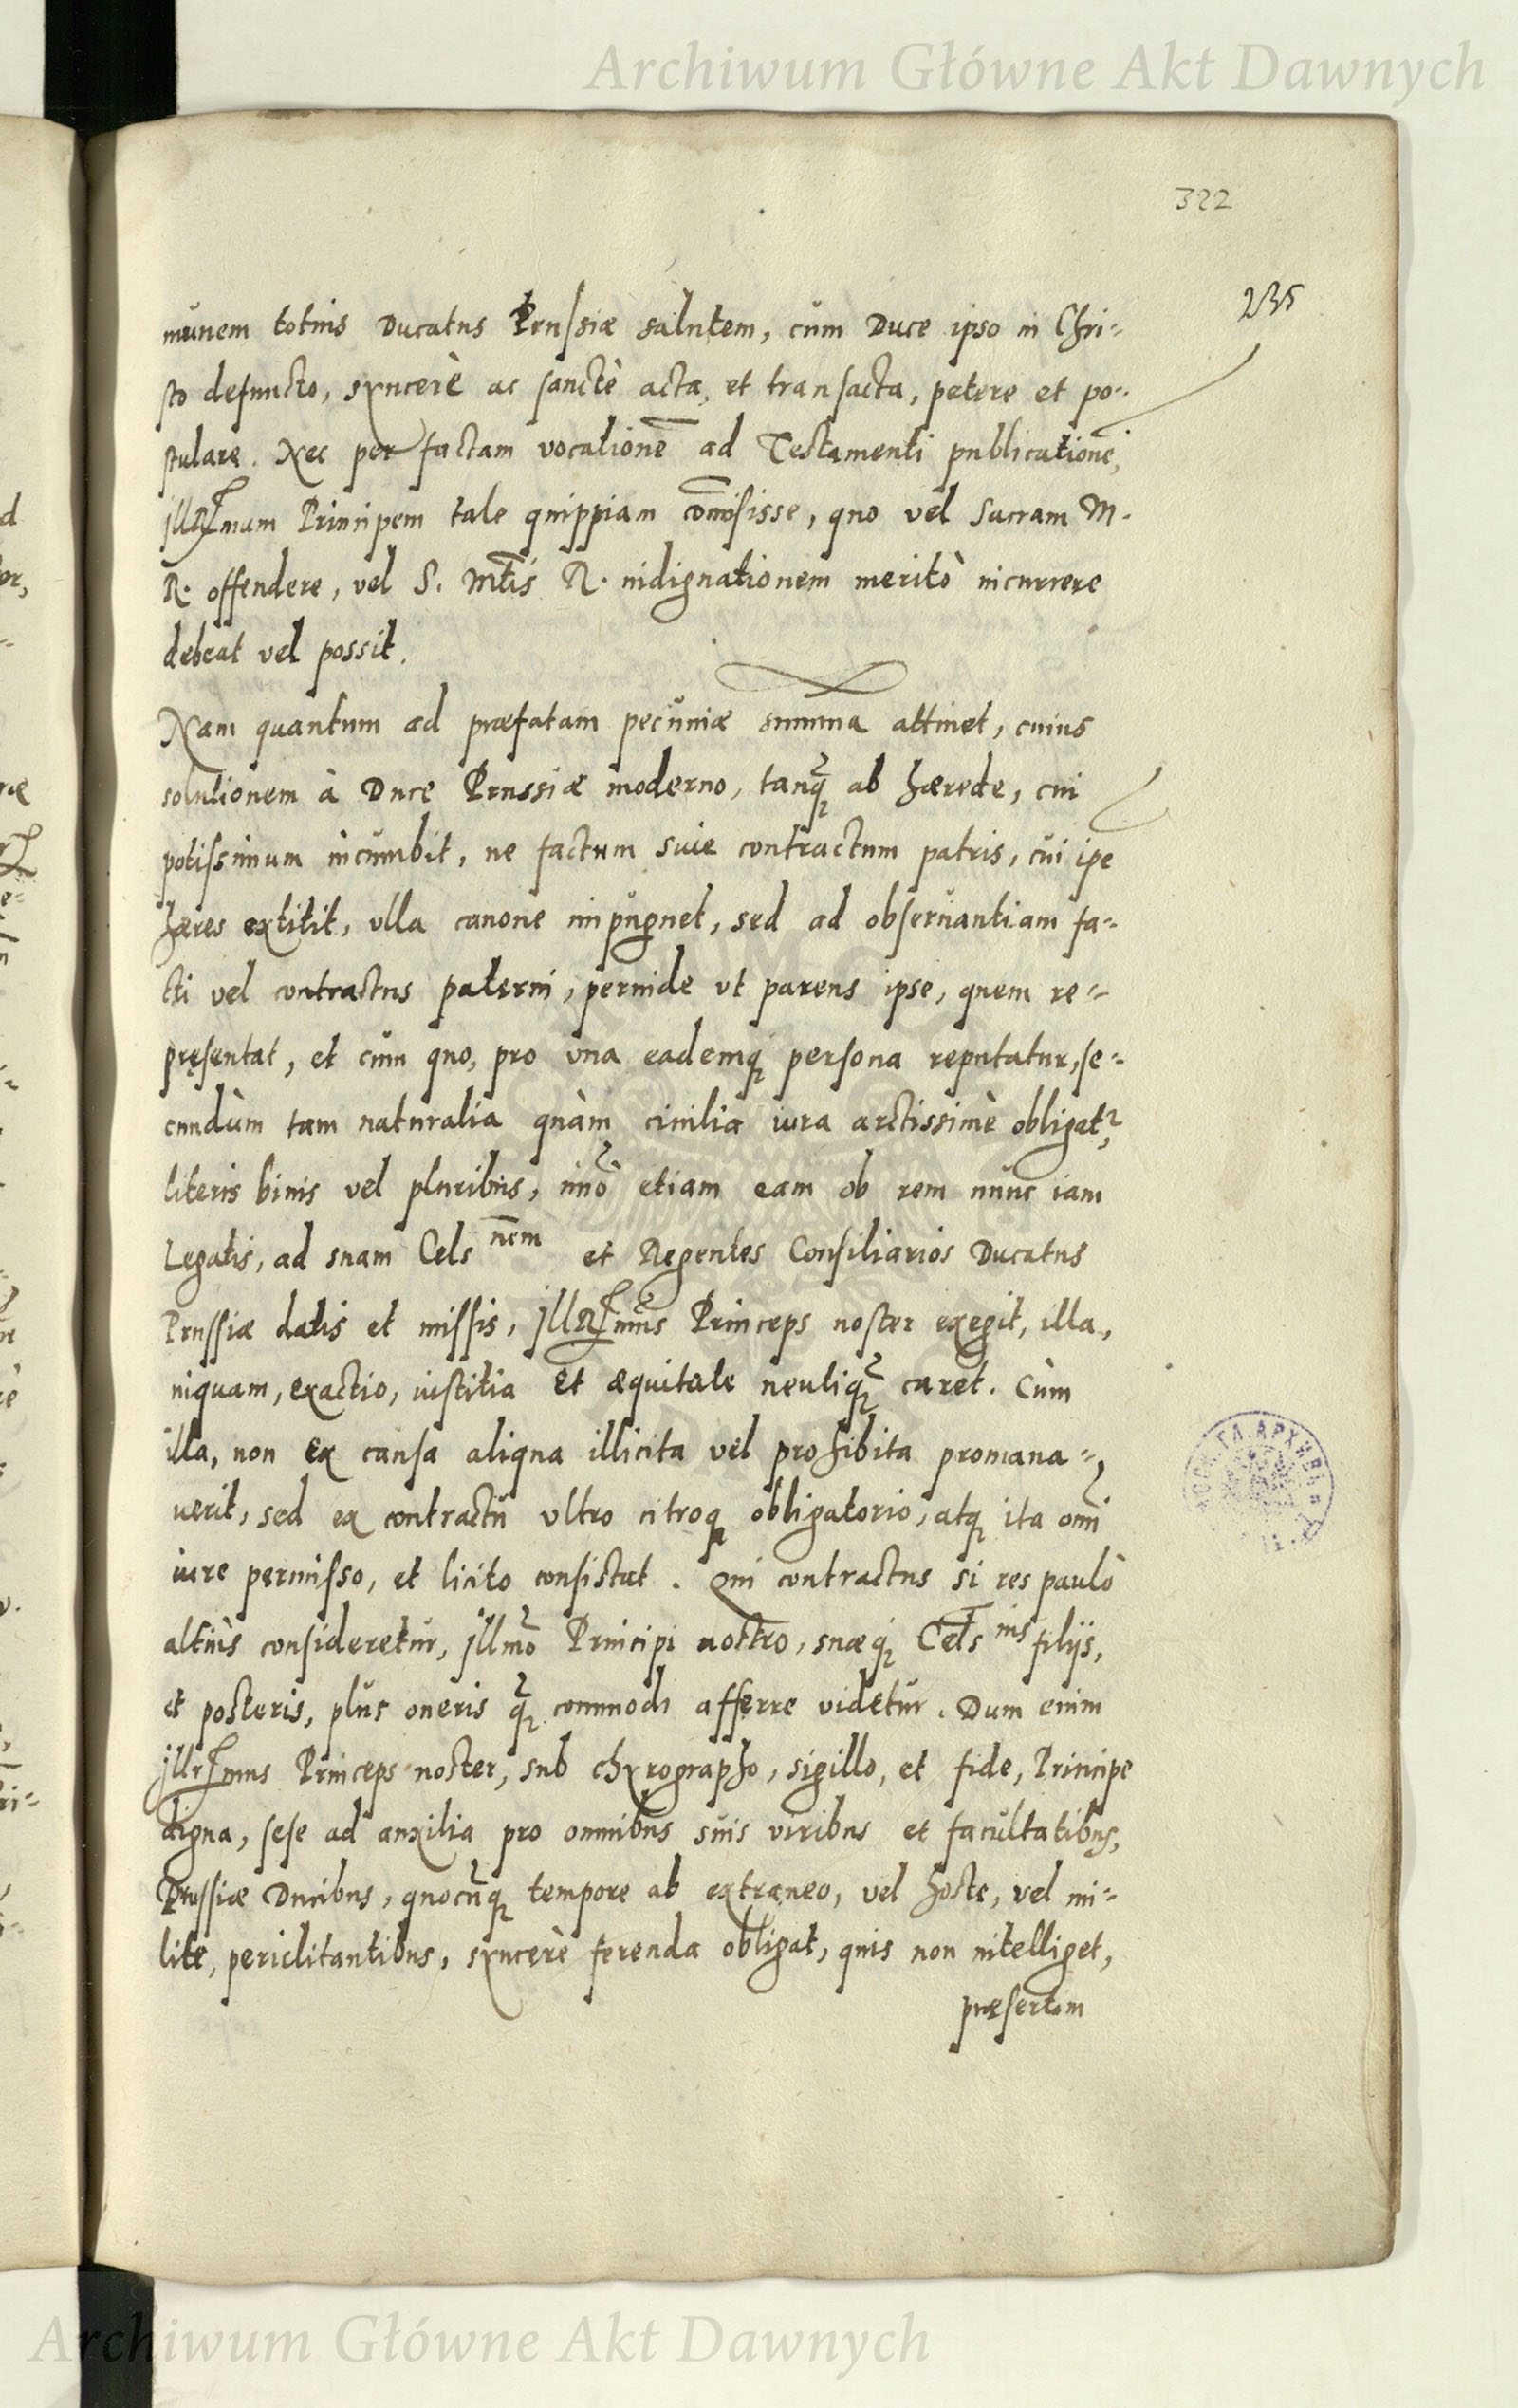 Archiwum Główne Akt Dawnych
322
235
munem totius Ducatus Prussiæ salutem, cùm Duce ipso in Chri-
sto defuncto, syncerè ac sanctè acta, et transacta, petere et po-
stulare. Nec per factam vocationē ad Testamenti publicationē,
Illrmum Principem tale quippiam cōmisisse, quo vel Sacram M.
R. offendere, vel S. Mtis R. indignationem meritò incurrere
debeat vel possit.
Nam quantum ad præfatam pecuniæ summa attinet, cuius
solutionem à Duce Prussiæ moderno, tanq̨ ab hærede, cui
potissimum incumbit, ne factum siue contractum patris, cui ipe
hæres extitit, vlla canone impugnet, sed ad obseruantiam fa-
cti vel contractus paterni, perinde vt parens ipse, quem re-
pręsentat, et cum quo, pro vna eademq̨ persona reputatur, se-
cundùm tam naturalia quàm ciuilia iura arctissimè obligatr,
literis binis vel pluribus, imò etiam eam ob rem nunc iam
Legatis, ad suam Cels nem et Regentes Consiliarios Ducatus
Prussiæ datis et missis, Illrmus Princeps noster exegit, illa,
inquam, exactio, iustitia et æquitate neutiq̨ caret. Cùm
illa, non ex causa aliqua illicita vel prohibita promana-
uerit, sed ex contractu vltro citroq̨ obligatorio, atq̨ ita omī
iure permisso, et licito consistat. Qui contractus si res paulò
altiùs consideretur, Illmo Principi nostro, suæq̨ Cels nis filijs,
et posteris, plus oneris q̨ commodi afferre videtur. Dum enim
Illrmus Princeps noster, sub chyrographo, sigillo, et fide, Principe
digna, sese ad auxilia pro omnibus suis viribus et facultatibus,
Prussiæ Ducibus, quocunq̨ tempore ab extraneo, vel hoste, vel mi-
lite, periclitantibus, syncerè ferenda obligat, quis non intelliget,
præsertim
Archiwum Główne Akt Dawnych